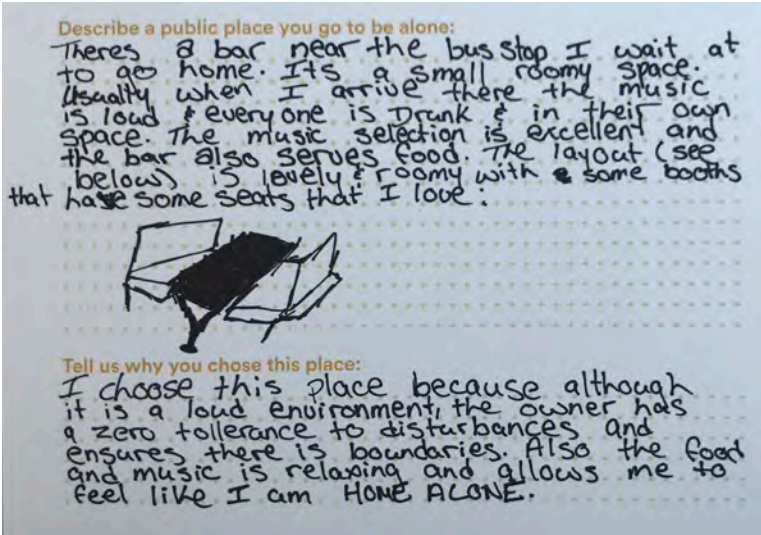 Describe a public place you go to be alone:
Theres a bar near the bus stop I wait at
to go home. Its a small roomy space.
Usually when I arrive there the music
is loud & everyone is Drunk & in their own
space. The music selection is excellent and
the bar also serves food. The layout (see
below) is lovely & roomy with some booths
that have some seats that I love:
Tell us why you chose this place:
I choose this place because although
it is a loud environment, the owner has
a zero tollerance to disturbances and
ensures there is boundaries. Also the food
and music is relaxing and allows me to
feel like I am HOME ALONE.